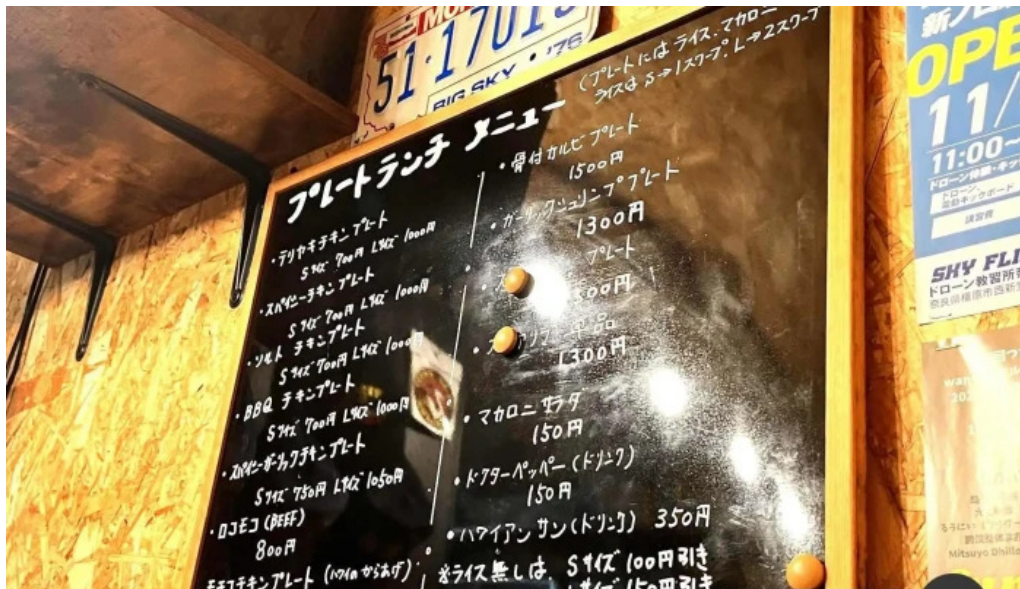 51-1701
BIG SKY '76
プレートランチ メニュー
(プレートには ライス、マカロニ
ライスは S→1スクープ、L→2スクープ
・テリヤキチキンプレート
Sサイズ 700円 Lサイズ 1000円
・スパイシーチキンプレート
Sサイズ 700円 Lサイズ 1000円
・ソルト チキンプレート
Sサイズ 700円 Lサイズ 1000円
・BBQ チキンプレート
Sサイズ 700円 Lサイズ 1000円
・スパイシーガーリックチキンプレート
Sサイズ 750円 Lサイズ 1050円
・ロコモコ (BEEF)
800円
モチコチキンプレート (ハワイのからあげ)
・骨付カルビプレート
1500円
・ガーリックシュリンププレート
1300円
プレート
00円
単品
1300円
・マカロニサラダ
150円
・ドクターペッパー (ドリンク)
150円
・ハワイアンサン (ドリンク) 350円
※ライス無しは Sサイズ 100円引き
Lサイズ 150円引き
OPE
11/
11:00~
ドローン体験・キッ
ドローン、
電動キックボード
講習費
SKY FLI
ドローン教習所
奈良県橿原市西新
Mitsuyo Dhillo